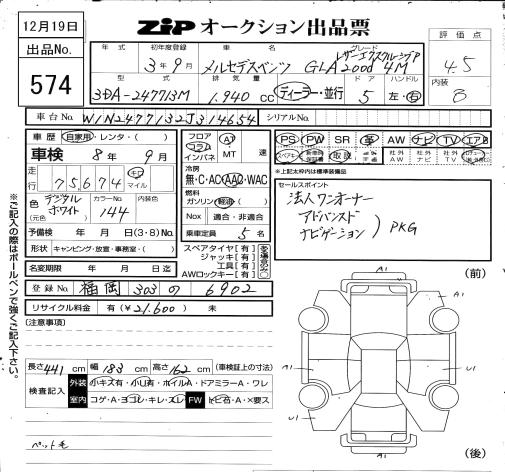 12月19日
出品No.
574
ZiP オークション出品票
評価点
4.5
内装
B
年式 初年度登録 車名 グレード
3年9月 メルセデスベンツ GLA200d 4M
レザーエクスクルーシブP
型式 排気量 ドア ハンドル
3DA-247713M 1.940 cc ディーラー・並行 5 左・右
車台No. W1N2477132J314654 シリアルNo.
車歴 自家用・レンタ・( )
車検 8年9月
走行 75,674 キロ マイル
色 デジタルホワイト (元色) カラーNo. 144 内装色
予備検 年 月 日 (3・8) No.
形状 キャンピング・放宣・事務室・( )
名変期限 年 月 日 迄
フロア コラム インパネ AT MT 速
冷房 無・C・AC・AAC・WAC
燃料 ガソリン・軽油( )
Nox 適合・非適合
乗車定員 5名
スペアタイヤ[有]
ジャッキ[有]
工具[有]
AWロックキー[有]
PS PW SR 革 AW ナビ TV エアB
スペアキー 新車時保証書 取説 社外AW 社外ナビ 社外TV
*上記太枠内は標準装備品
セールスポイント
法人ワンオーナー
アドバンスド
ナビゲーション ) PKG
登録No. 福岡 303 の 6902
リサイクル料金 有(¥21.600) 無
(注意事項)
長さ 441 cm 幅 183 cm 高さ 162 cm (車検証上の寸法)
検査記入 外装 小キズ有・小凹有・ホイルA・ドアミラーA・ワレ
室内 コゲA・ヨゴレ・キレ・スレ FW トビ石・A・×要ス
ペット毛
(前)
A1
A1
A1
U1
U1
A1
(後)
※ご記入の際はボールペンで強くご記入下さい。